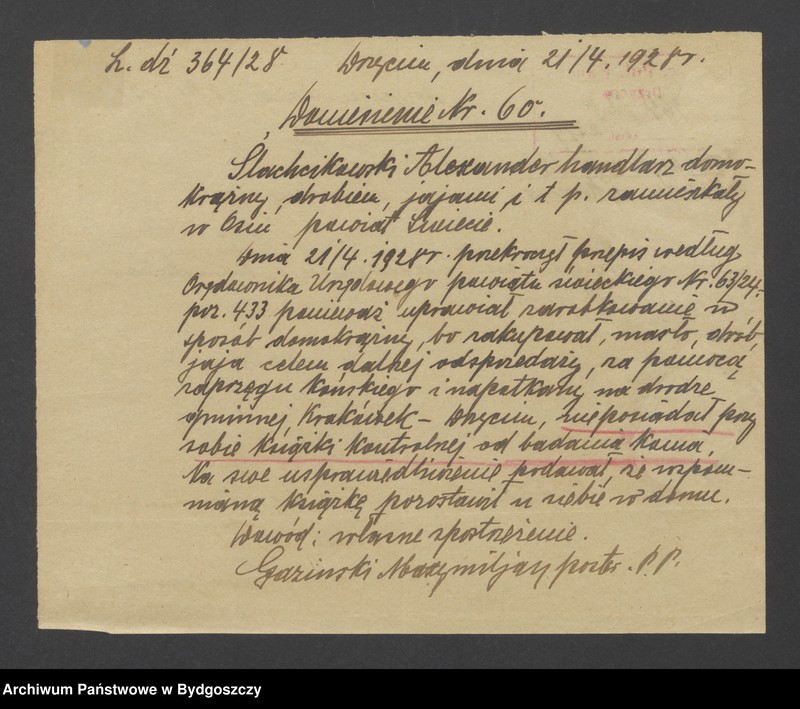 L. dź 364/28 Drzycim, dnia 21/4. 1928 r.
Doniesienie Nr. 60.
Slachcikowski Alexander handlarz domo-
krążny, drobiem, jajami, i t p. zamieszkały
w Osiu powiat Świecie.
Dnia 21/4. 1928 r. przekroczył przepis według
Orędownika Urzędowego powiatu świeckiego Nr. 63/24.
poz. 433 ponieważ uprawiał zarobkowanie w
sposób domokrążny, bo zakupował, masło, drób,
jaja celem dalszej odsprzedaży, za pomocą
zaprzęgu końskiego i napotkany na drodze
gminnej, Krakówek – Drzycim, nieposiadał przy
sobie książki kontrolnej od badania konia,
Na swe usprawiedliwienie podawał że wspom-
nianą książkę pozostawił u siebie w domu.
Dowód: własne spostrzeżenie.
Gaziński Maxymiljan poster. P.P.
Archiwum Państwowe w Bydgoszczy